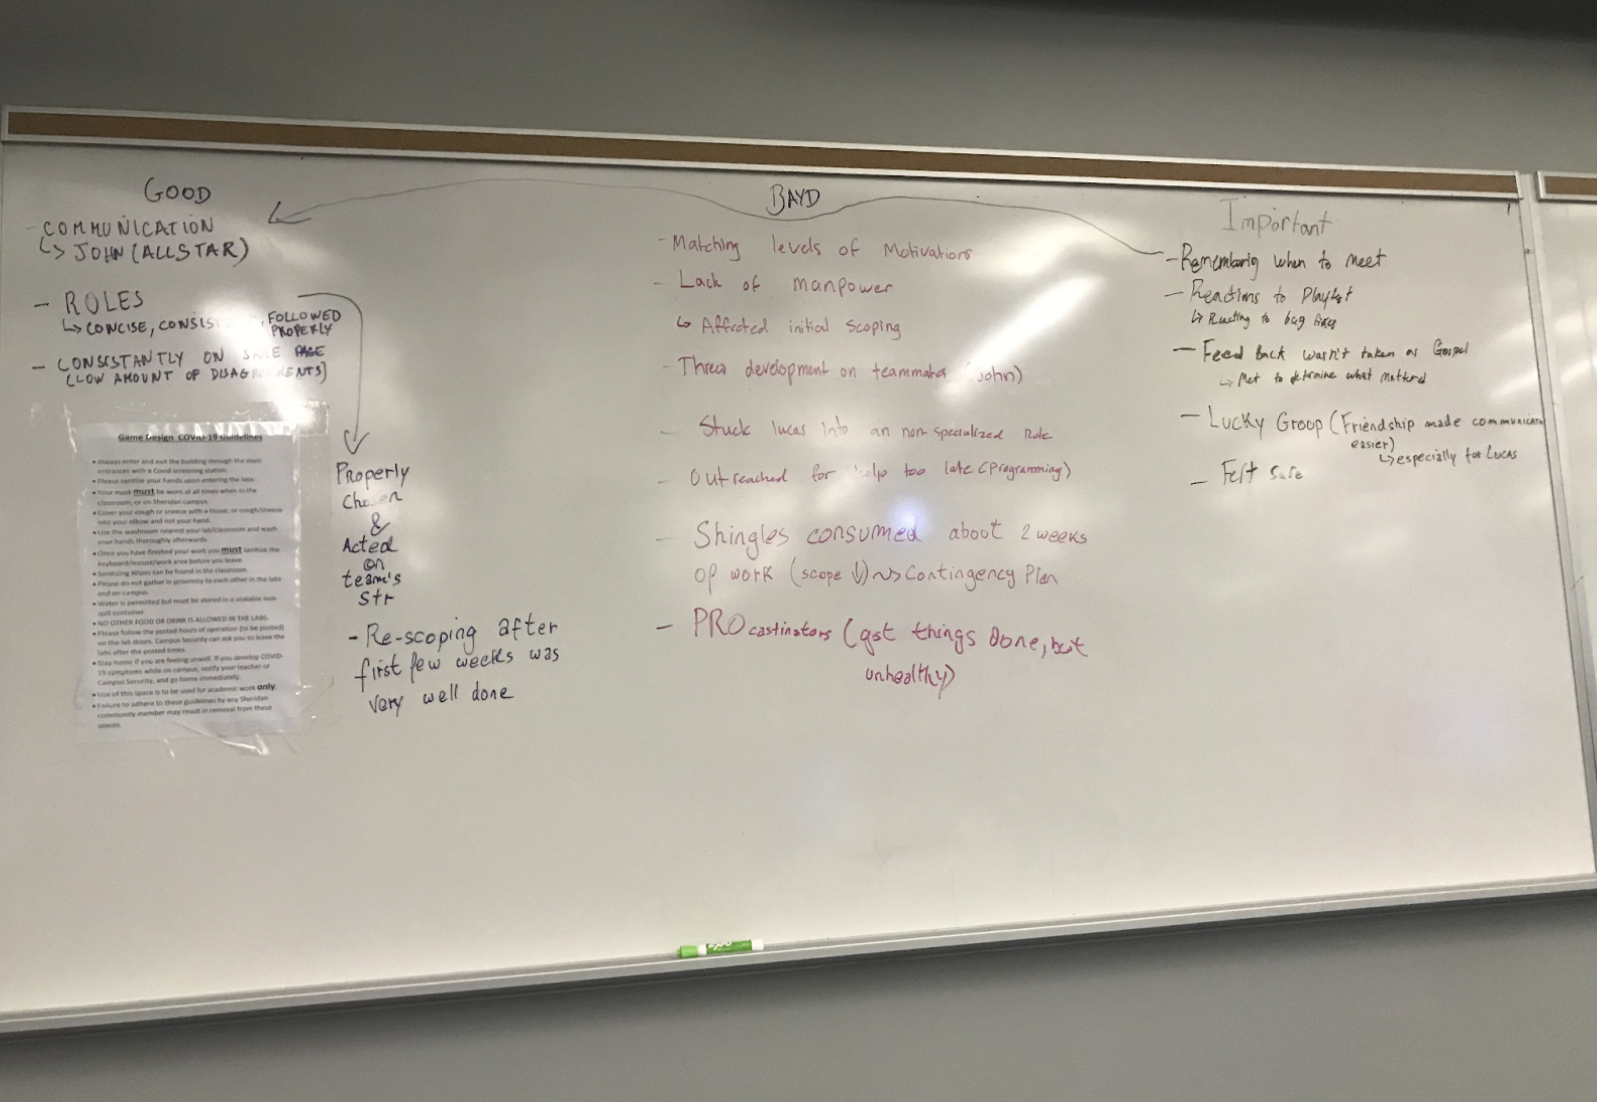 GOOD
- COMMUNICATION
↳ JOHN (ALLSTAR)
- ROLES
↳ CONCISE, CONSIS , FOLLOWED
PROPERLY
- CONSISTANTLY ON SAME PAGE
(LOW AMOUNT OF DISAGREEMENTS)
Properly
Chosen
&
Acted
on
team's
Str
- Re-scoping after
first few weeks was
very well done
Game Design COVID-19 Guidelines
• Always enter and exit the building through the main
entrances with a Covid screening station.
• Please sanitize your hands upon entering the labs.
• Your mask must be worn at all times when in the
classroom, or on Sheridan campus.
• Cover your cough or sneeze with a tissue, or cough/sneeze
into your elbow and not your hand.
• Use the washroom nearest your lab/classroom and wash
your hands thoroughly afterwards.
• Once you have finished your work you must sanitize the
keyboard/mouse/work area before you leave.
• Sanitizing Wipes can be found in the classroom.
• Please do not gather in proximity to each other in the labs
and on campus.
• Water is permitted but must be stored in a sealable non-
spill container.
• NO OTHER FOOD OR DRINK IS ALLOWED IN THE LABS.
• Please follow the posted hours of operation (to be posted)
on the lab doors. Campus Security can ask you to leave the
labs after the posted times.
• Stay home if you are feeling unwell. If you develop COVID-
19 symptoms while on campus, notify your teacher or
Campus Security, and go home immediately.
• Use of this space is to be used for academic work only.
• Failure to adhere to these guidelines by any Sheridan
community member may result in removal from these
spaces.
BAYD
- Matching levels of Motivations
- Lack of manpower
↳ Affected initial scoping
- Threw development on teammates (John)
- Stuck lucas into an non specialized Role
- Outreached for help too late (Programming)
- Shingles consumed about 2 weeks
of work (scope ↓) ~> Contingency Plan
- PROcastinators (got things done, but
unhealthy)
Important
- Remembering when to meet
- Reactions to Playtest
↳ Reacting to bug fixes
- Feed back wasn't taken as Gospel
↳ Met to determine what mattered
- Lucky Group (Friendship made
easier)
↳ especially for Lucas
- Felt safe